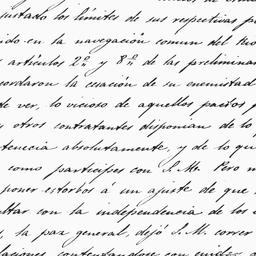 ustado los límites de sus respectivas p
ido en la navegación comun del Rio
articulos 2º y 8º de las preliminar
cordaron la cesación de su enemistad
de ver, lo vicioso de aquellos pactos p
y otros contratantes disponian de lo
tenecia absolutamente, y de lo qu
como participes con S. M. Pero n
poner estorbos a un ajuste de que
ltar con la independencia de los
y la paz general, dejó S. M. correr
laciones, contentandose con cuidar